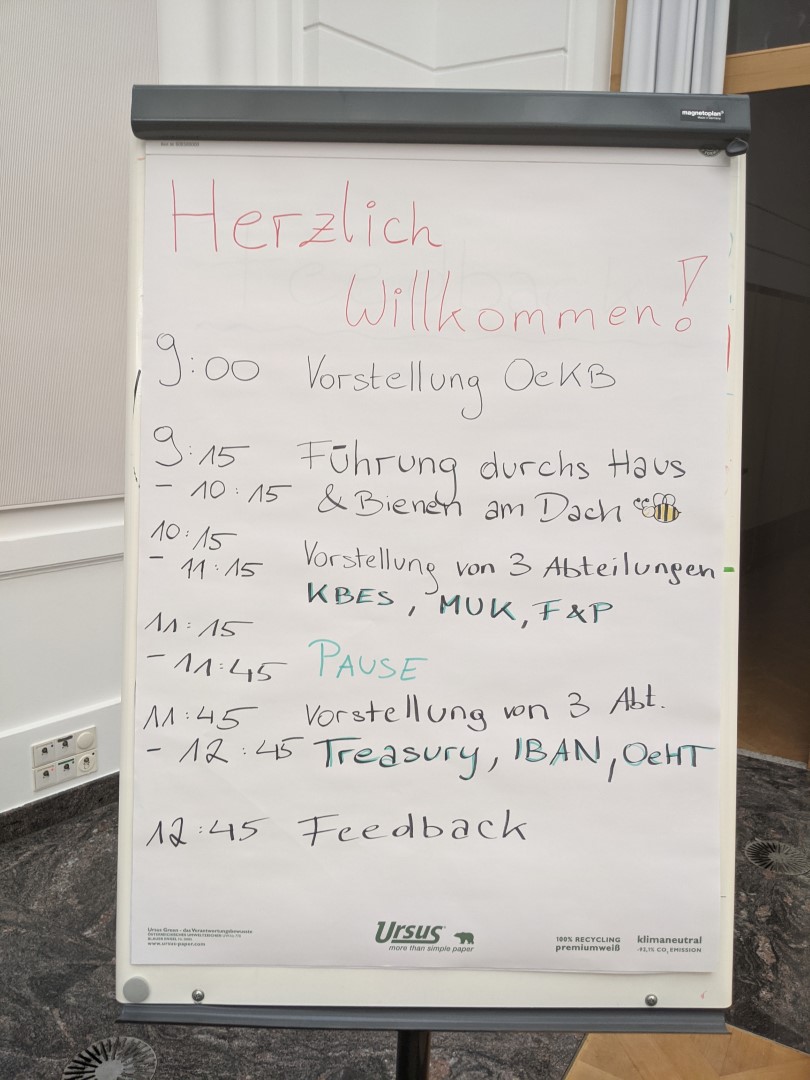 magnetoplan®
Herzlich
Willkommen!
9:00 Vorstellung OeKB
9:15 Führung durchs Haus
- 10:15 & Bienen am Dach
10:15
- 11:15 Vorstellung von 3 Abteilungen
KBES, MUK, F&P
11:15
- 11:45 PAUSE
11:45 Vorstellung von 3 Abt.
- 12:45 Treasury, IBAN, OeHT
12:45 Feedback
Ursus Green - das Verantwortungsbewusste
www.ursus-paper.com
Ursus
more than simple paper
100% RECYCLING
premiumweiß
klimaneutral